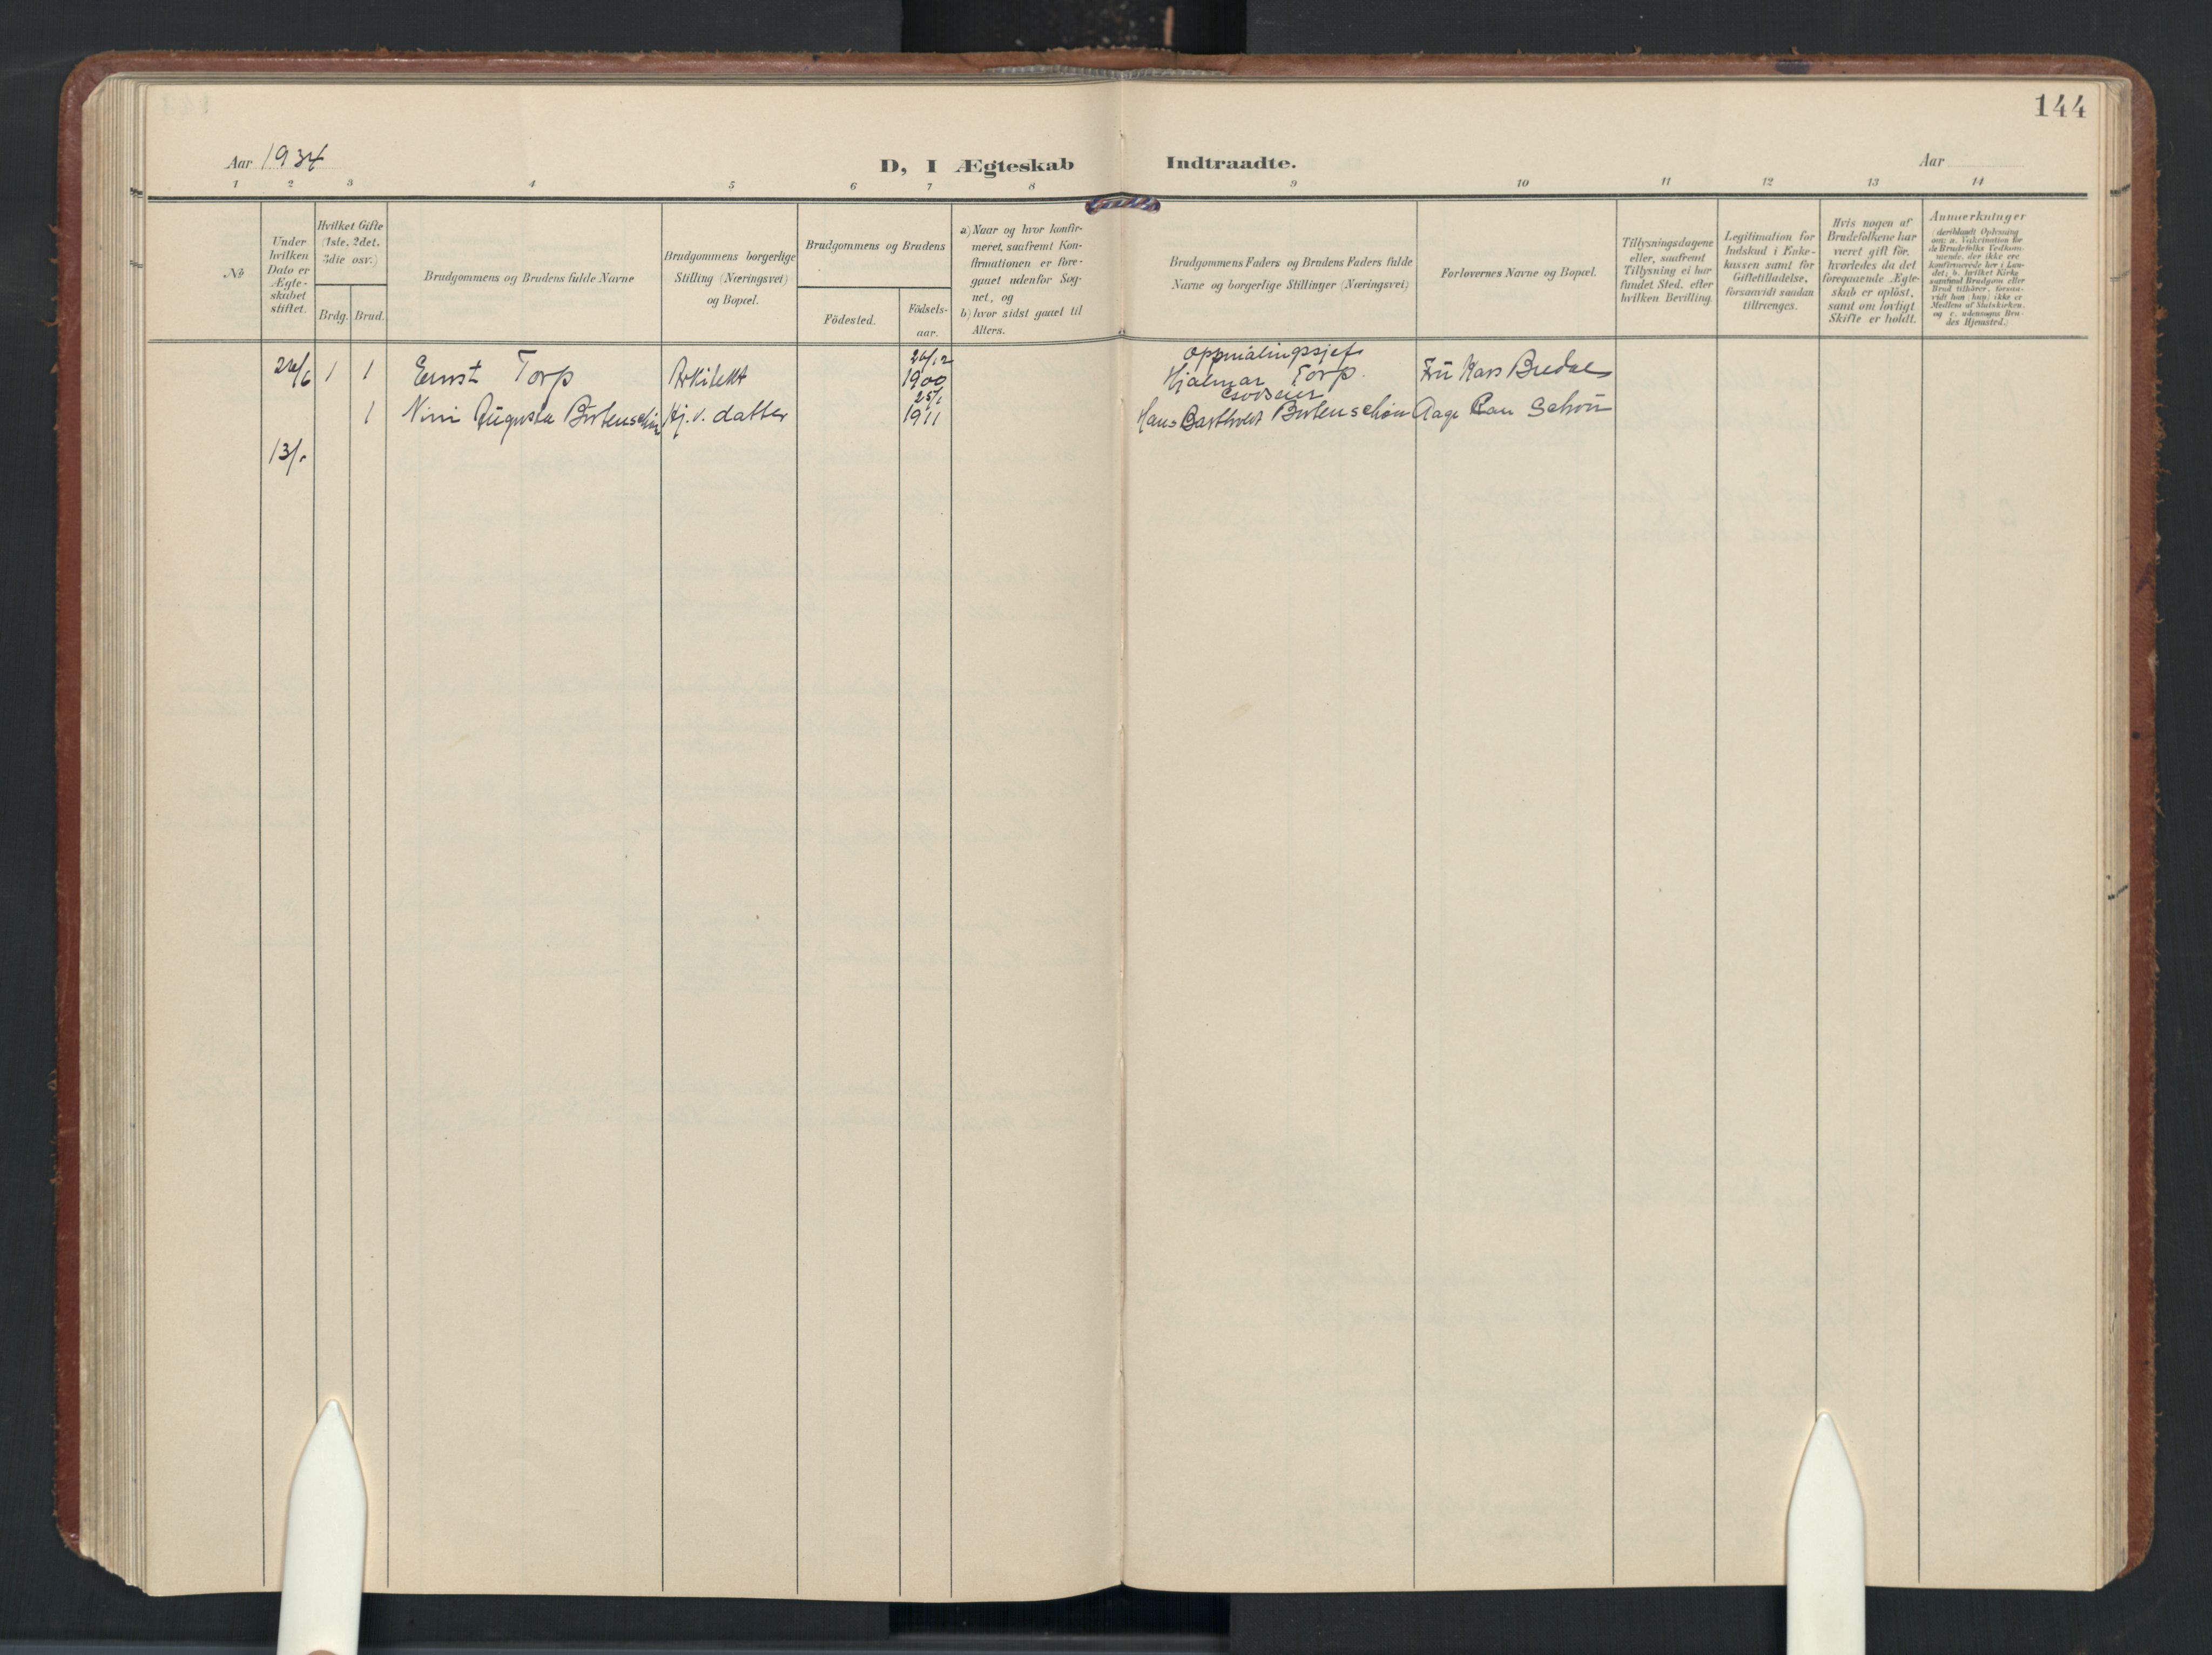 144
Aar 1934
D, I Ægteskab Indtraadte.
Aar
1 2 3 4 5 6 7 8 9 10 11 12 13 14
No
Under
hvilken
Dato er
Ægte-
skabet
stiftet.
Hvilket Gifte
(1ste, 2det,
3die osv.)
Brdg. Brud.
Brudgommens og Brudens fulde Navne
Brudgommens borgerlige
Stilling (Næringsvei)
og Bopæl.
Brudgommens og Brudens
Födested.
Födsels-
aar.
a) Naar og hvor konfir-
meret, saafremt Kon-
firmationen er fore-
gaaet udenfor Sog-
net, og
b) hvor sidst gaaet til
Alters.
Brudgommens Faders og Brudens Faders fulde
Navne og borgerlige Stillinger (Næringsvei)
Forlovernes Navne og Bopæl.
Tillysningsdagene
eller, saafremt
Tillysning ei har
fundet Sted, efter
hvilken Bevilling.
Legitimation for
Indskud i Enke-
kassen samt for
Giftetilladelse,
forsaavidt saadan
tiltrænges.
Hvis nogen af
Brudefolkene har
været gift för,
hvorledes da det
foregaaende Ægte-
skab er oplöst,
samt om lovligt
Skifte er holdt.
Anmærkninger
(deriblandt Oplysning
om: a. Vakcination for
de Brudefolks Vedkom-
mende, der ikke ere
konfirmerede her i Lan-
det; b. hvilket Kirke
samfund Brudgom eller
Brud tilhörer, forsaa-
vidt han (hun) ikke er
Medlem af Statskirken,
og c. udensogns Bru-
des Hjemsted.)
26/12 oppmålingssjef
1 1 Ernst Torp Arkitekt 1900 Hjalmar Torp. Frü
25/1
1 Nini Augusta Hj.v. datter 1911 Hans Aage Schou
13/